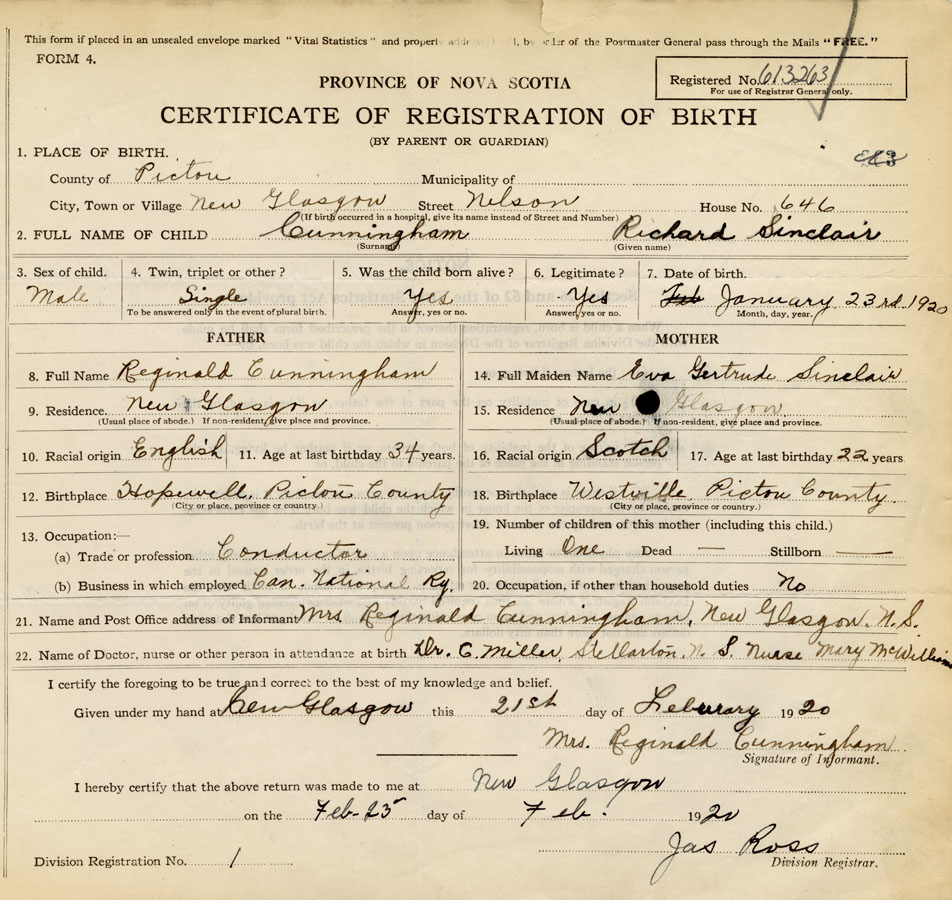 This form if placed in an unsealed envelope marked "Vital Statistics" and properly addressed by order of the Postmaster General pass through the Mails "FREE."
FORM 4.
Registered No. 613263
For use of Registrar General only.
PROVINCE OF NOVA SCOTIA
CERTIFICATE OF REGISTRATION OF BIRTH
(BY PARENT OR GUARDIAN)
1. PLACE OF BIRTH.
County of Pictou Municipality of
City, Town or Village New Glasgow Street Nelson House No. 646
(If birth occurred in a hospital, give its name instead of Street and Number)
2. FULL NAME OF CHILD Cunningham Richard Sinclair
(Surname) (Given name)
3. Sex of child. 4. Twin, triplet or other? 5. Was the child born alive? 6. Legitimate? 7. Date of birth.
Male Single Yes Yes Feb January 23rd. 1920
To be answered only in the event of plural birth. Answer, yes or no. Answer, yes or no. Month, day, year.
FATHER MOTHER
8. Full Name Reginald Cunningham 14. Full Maiden Name Eva Gertrude Sinclair
9. Residence. New Glasgow 15. Residence New Glasgow
(Usual place of abode.) If non-resident, give place and province. (Usual place of abode.) If non-resident, give place and province.
10. Racial origin English 11. Age at last birthday 34 years. 16. Racial origin Scotch 17. Age at last birthday 22 years
12. Birthplace Hopewell, Pictou County 18. Birthplace Westville, Pictou County.
(City or place, province or country.) (City or place, province or country.)
13. Occupation:— 19. Number of children of this mother (including this child.)
(a) Trade or profession Conductor Living One Dead — Stillborn —
(b) Business in which employed Can. National Ry. 20. Occupation, if other than household duties No
21. Name and Post Office address of Informant Mrs. Reginald Cunningham, New Glasgow. N.S.
22. Name of Doctor, nurse or other person in attendance at birth Dr. C. Miller, Stellarton, N. S. Nurse Mary McWilliam
I certify the foregoing to be true and correct to the best of my knowledge and belief.
Given under my hand at New Glasgow this 21st day of Feburary 1920
Mrs. Reginald Cunningham
Signature of Informant.
I hereby certify that the above return was made to me at New Glasgow
on the Feb-25 day of Feb. 1920
Jas Ross
Division Registration No. 1 Division Registrar.